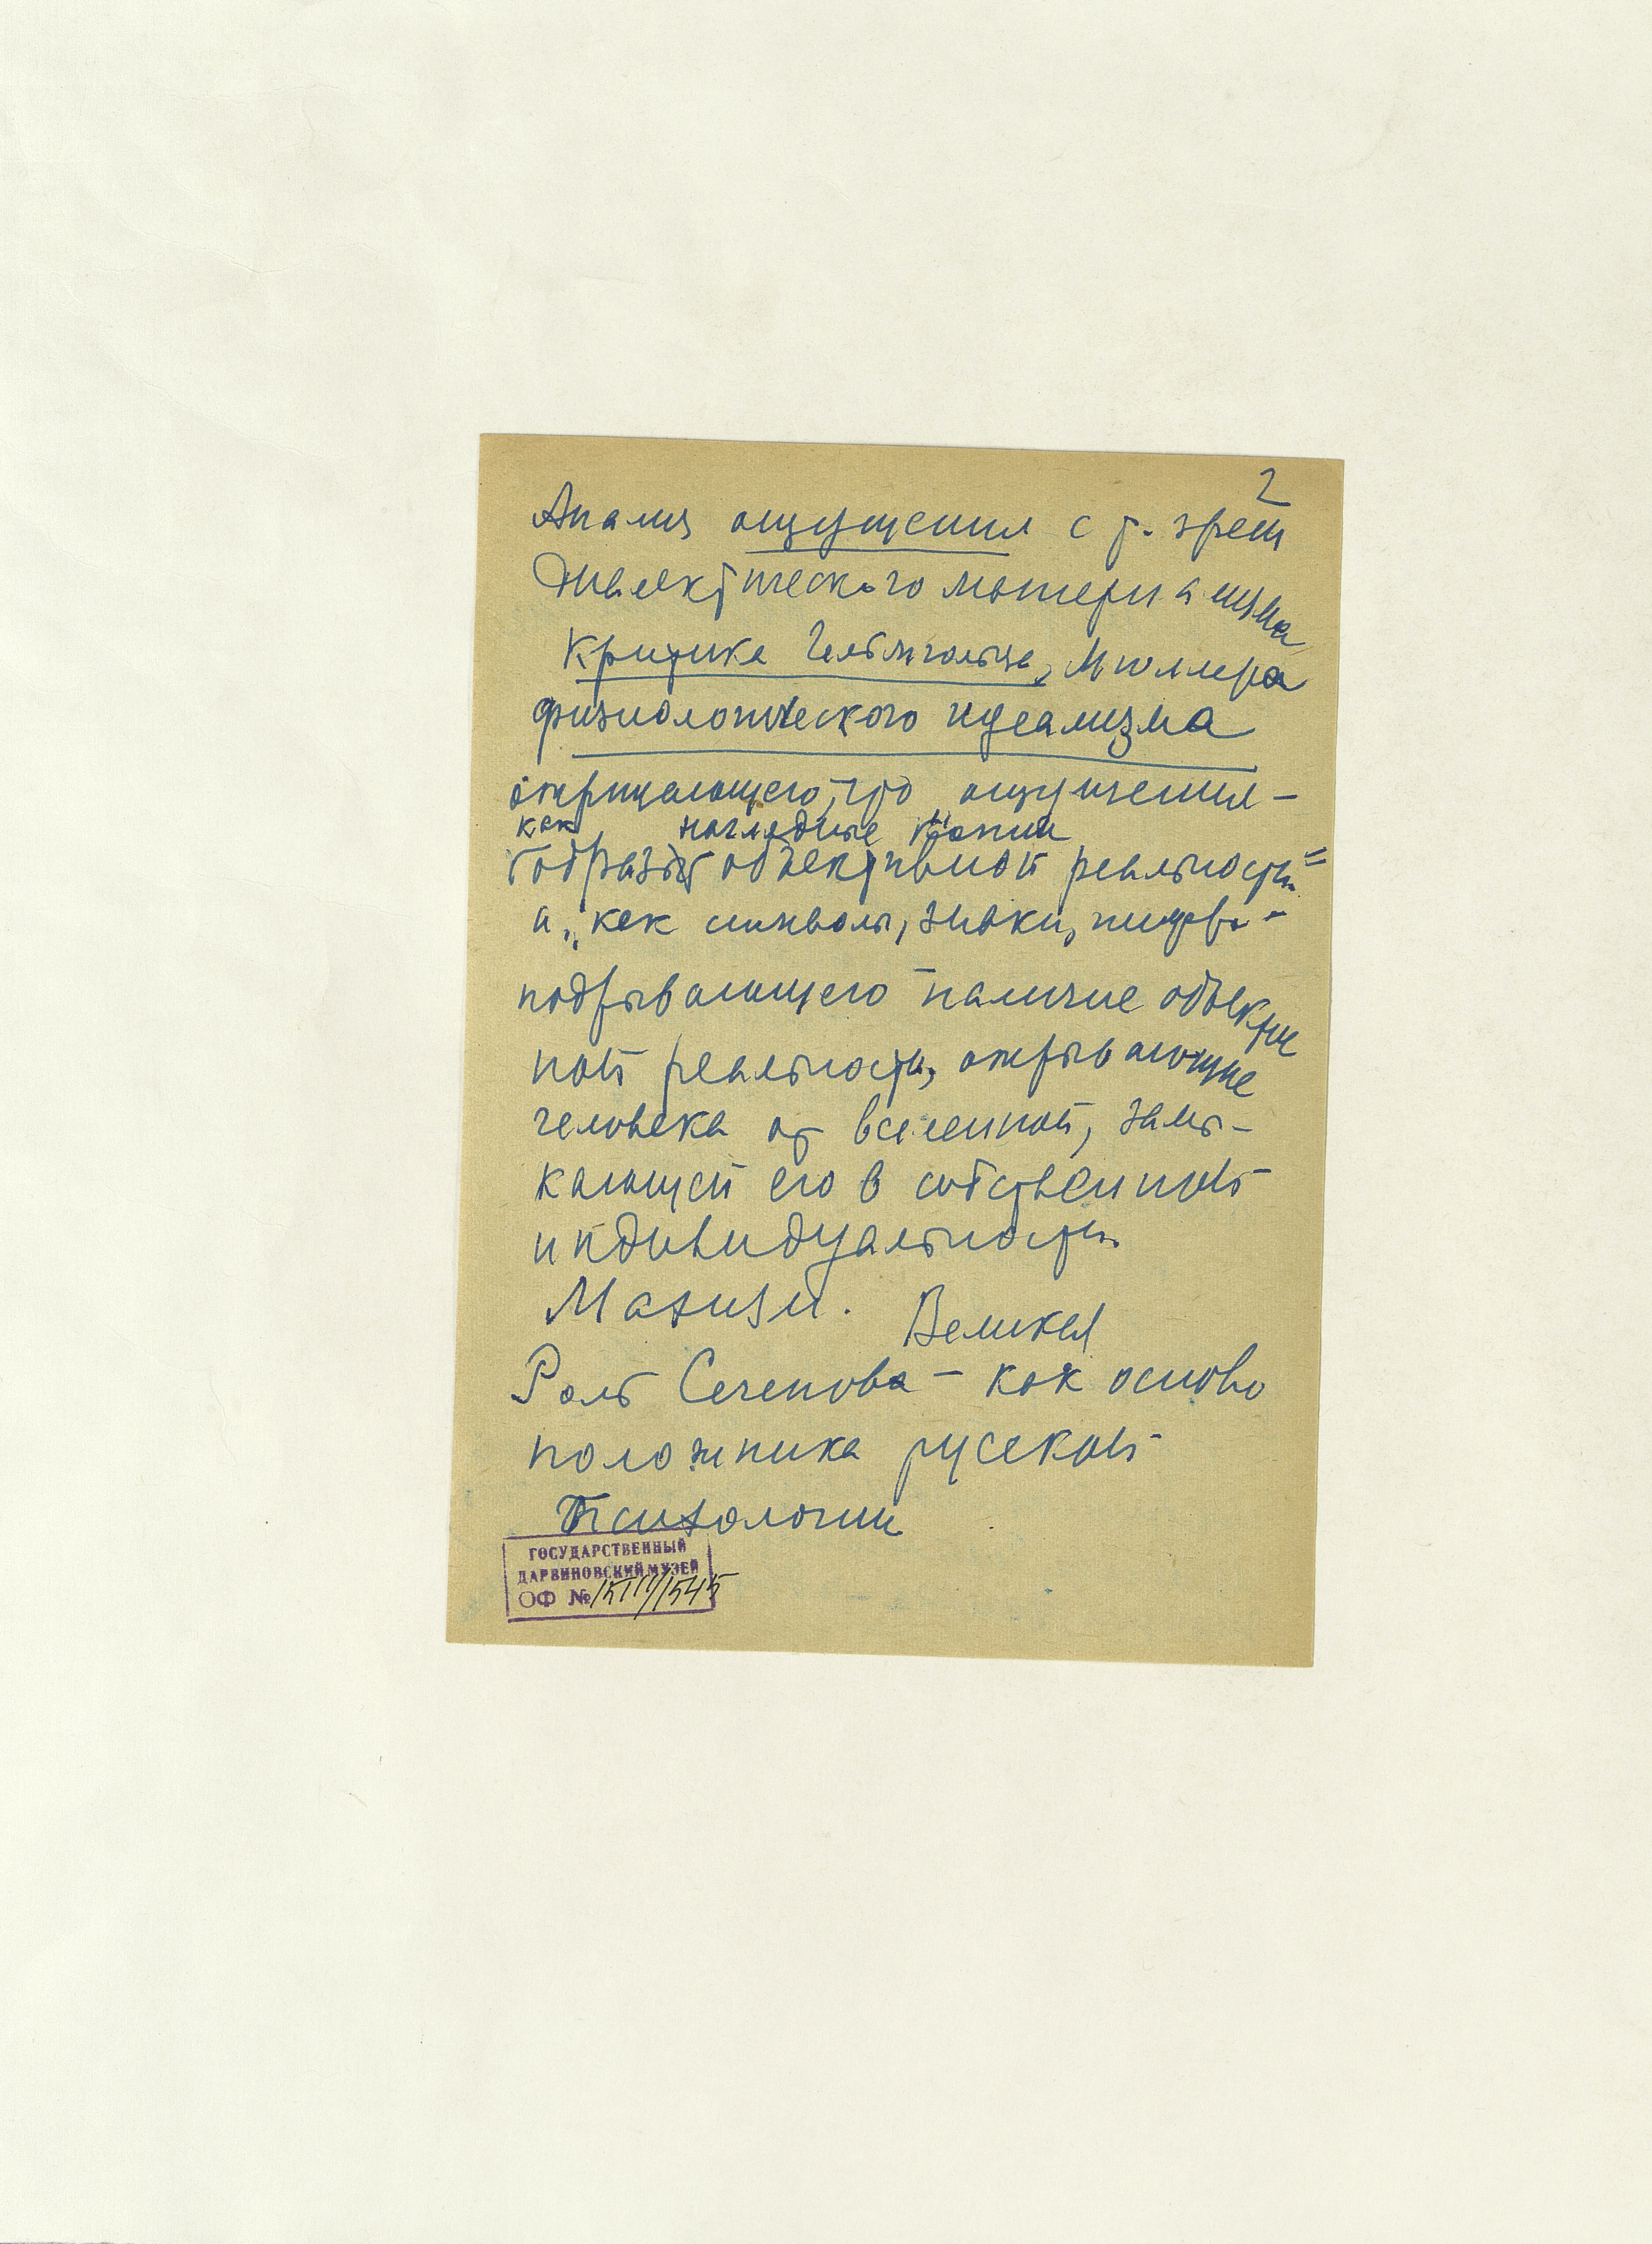 2
Анализ ощущения с т. зрен
Диалектического материализма
Критика Гельмгольца, Мюллера
физиологического идеализма
отрицающего, что ощущения –
как наглядные копии
образы объективной реальности
а „как символы, знаки, шифры"
подрывающего наличие объектив
ной реальности, открывающие
человека от вселенной, замы-
кающей его в собственной
индивидуальности.
Махизм. Великая
Роль Сеченова – как осново
положника русской
Психологии
ГОСУДАРСТВЕННЫЙ
ДАРВИНОВСКИЙ МУЗЕЙ
ОФ №